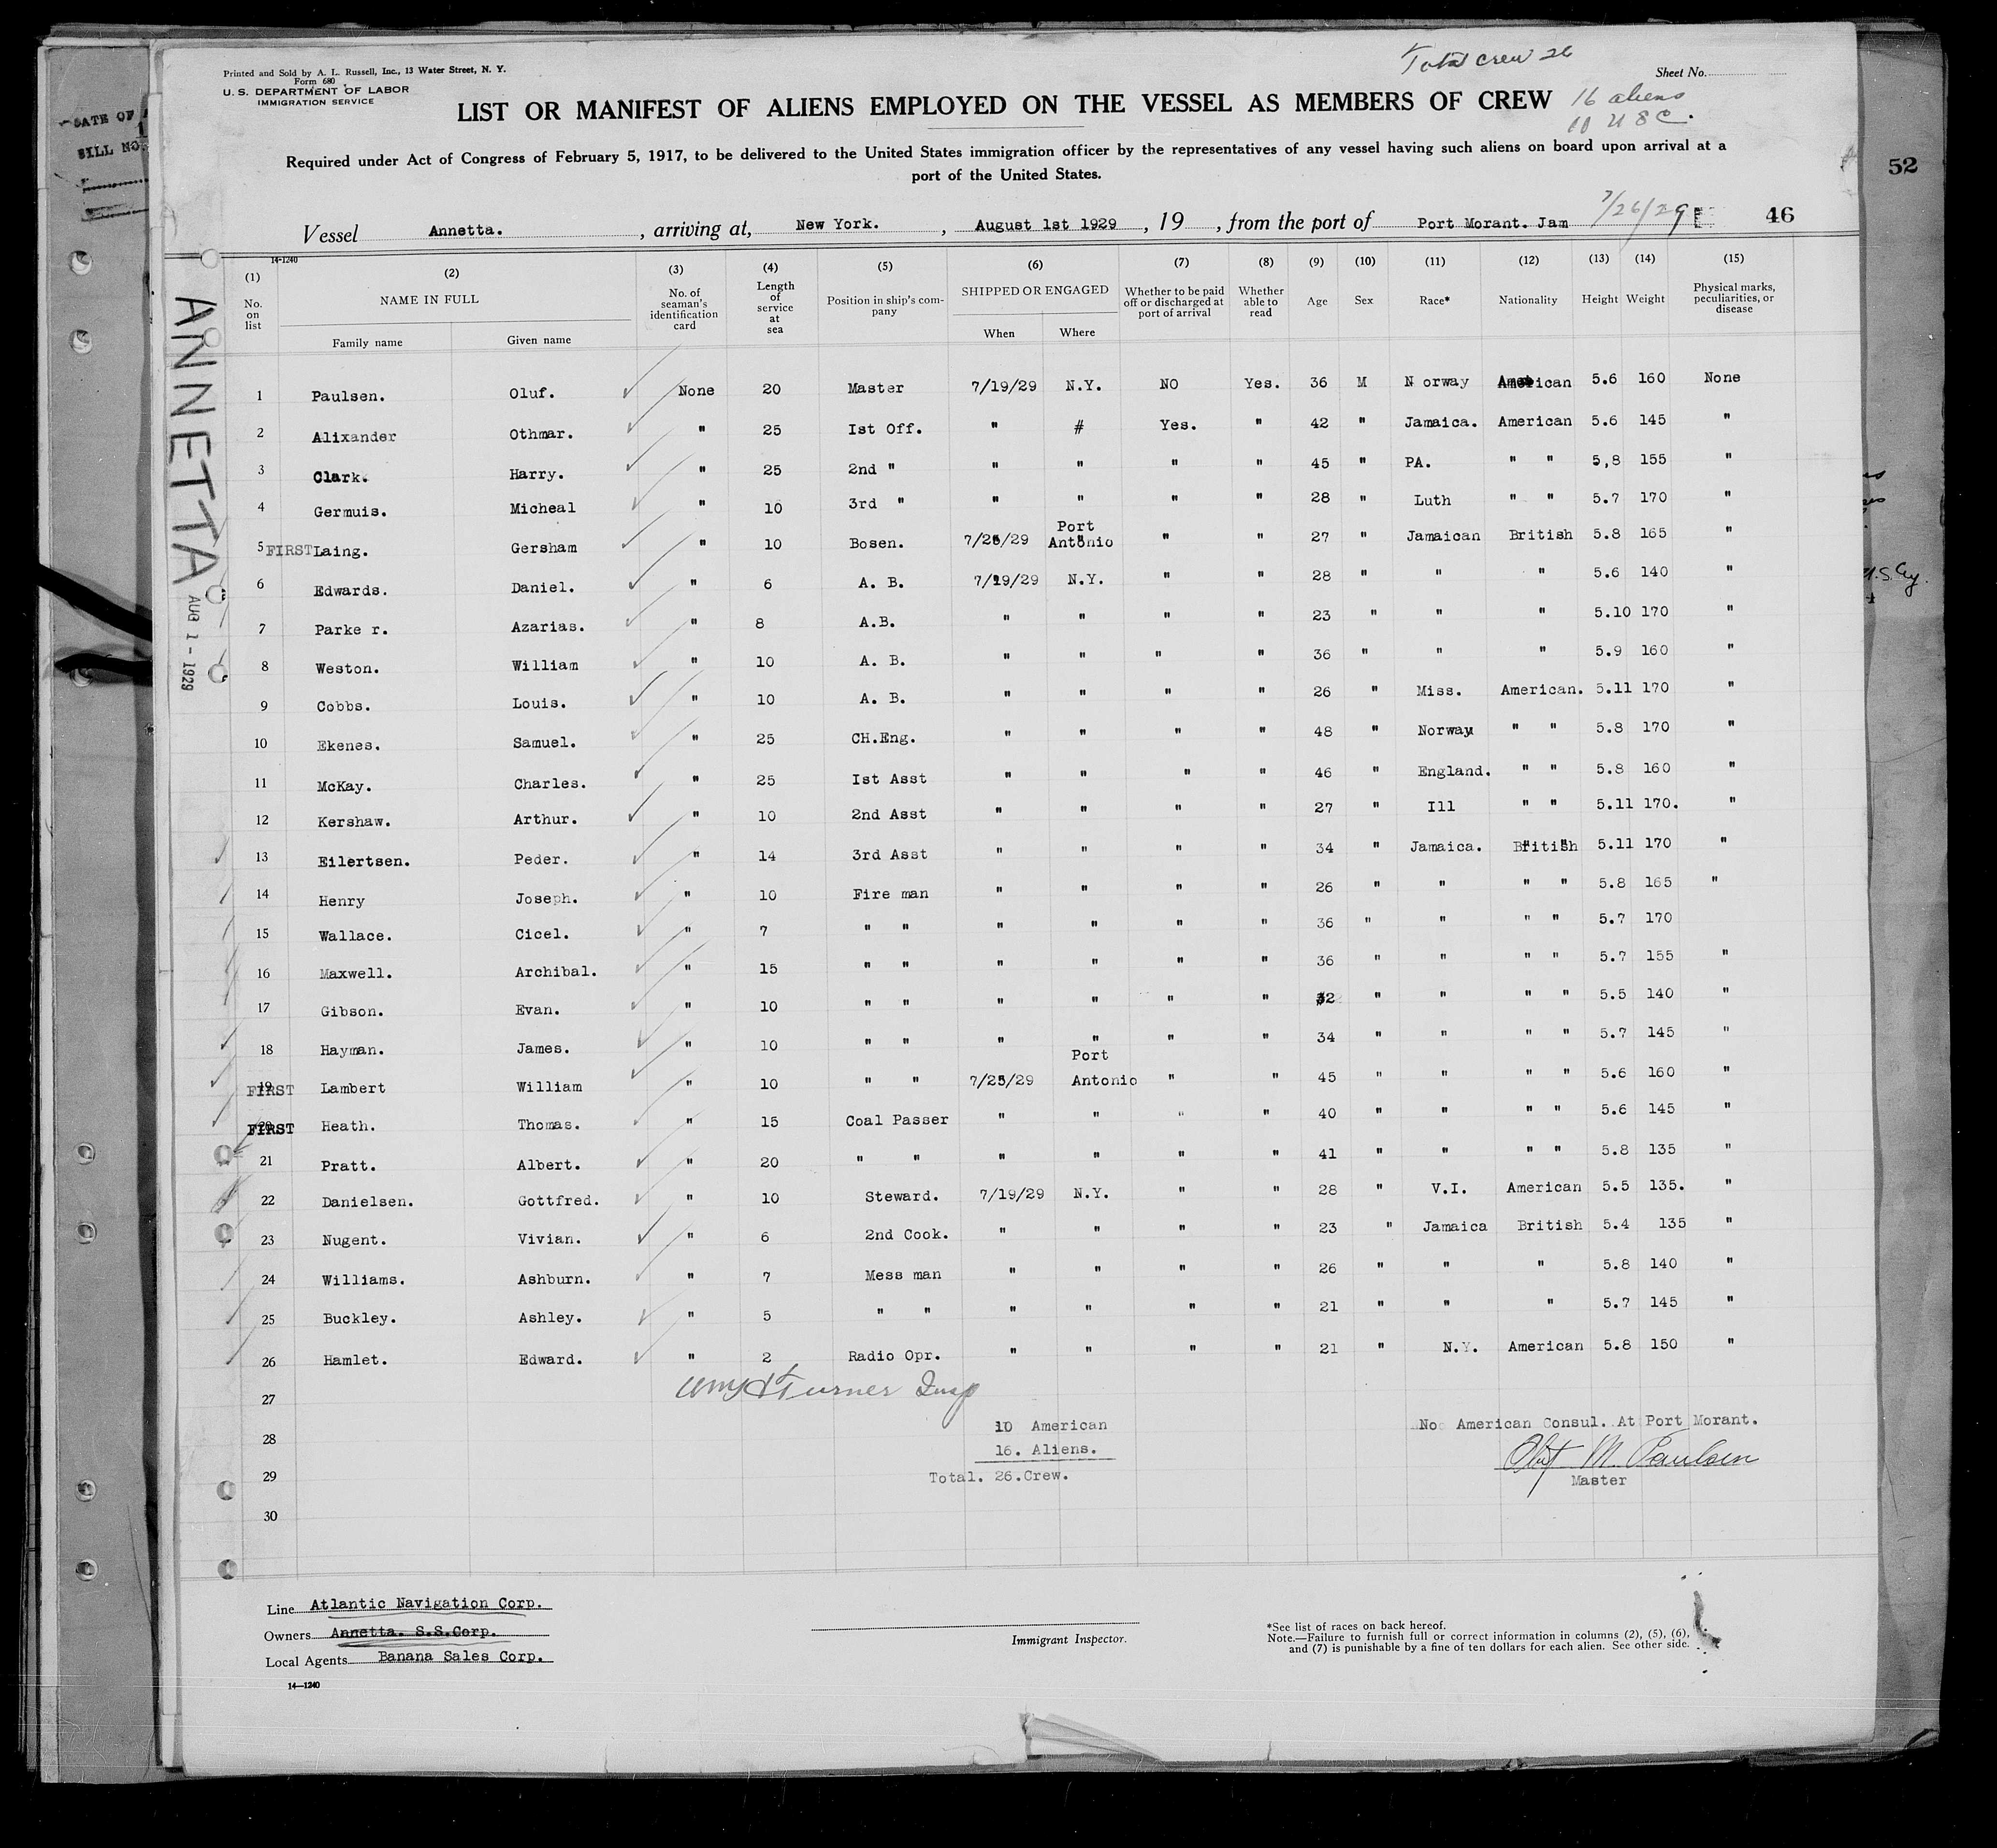 Total crew 26
Printed and Sold by A. L. Russell, Inc., 13 Water Street, N. Y.
Form 680
U. S. DEPARTMENT OF LABOR
IMMIGRATION SERVICE
Sheet No.
LIST OR MANIFEST OF ALIENS EMPLOYED ON THE VESSEL AS MEMBERS OF CREW
16 aliens
10 U S C.
Required under Act of Congress of February 5, 1917, to be delivered to the United States immigration officer by the representatives of any vessel having such aliens on board upon arrival at a
port of the United States.
52
DATE OF
BILL NO.
7/26/29
Vessel Annetta. , arriving at, New York. , August 1st 1929 , 19 , from the port of Port Morant. Jam 46
14-1240
(1) (2) (3) (4) (5) (6) (7) (8) (9) (10) (11) (12) (13) (14) (15)
No. on list NAME IN FULL Family name Given name No. of seaman's identification card Length of service at sea Position in ship's company SHIPPED OR ENGAGED When Where Whether to be paid off or discharged at port of arrival Whether able to read Age Sex Race* Nationality Height Weight Physical marks, peculiarities, or disease
ANNETTA
AUG 1 - 1929
1 Paulsen. Oluf. None 20 Master 7/19/29 N.Y. NO Yes. 36 M N orway American 5.6 160 None
2 Alixander Othmar. " 25 Ist Off. " # Yes. " 42 " Jamaica. American 5.6 145 "
3 Clark. Harry. " 25 2nd " " " " " 45 " PA. " " 5,8 155 "
4 Germuis. Micheal " 10 3rd " " " " " 28 " Luth " " 5.7 170 "
5 FIRST Laing. Gersham " 10 Bosen. 7/25/29 Port Antonio " " 27 " Jamaican British 5.8 165 "
6 Edwards. Daniel. " 6 A. B. 7/19/29 N.Y. " " 28 " " " 5.6 140 "
7 Parke r. Azarias. " 8 A.B. " " " " 23 " " " 5.10 170 "
8 Weston. William " 10 A. B. " " " " 36 " " " 5.9 160 "
9 Cobbs. Louis. " 10 A. B. " " " " 26 " Miss. American. 5.11 170 "
10 Ekenes. Samuel. " 25 CH.Eng. " " " " 48 " Norway " " 5.8 170 "
11 McKay. Charles. " 25 Ist Asst " " " " 46 " England. " " 5.8 160 "
12 Kershaw. Arthur. " 10 2nd Asst " " " " 27 " Ill " " 5.11 170. "
13 Eilertsen. Peder. " 14 3rd Asst " " " " 34 " Jamaica. British 5.11 170 "
14 Henry Joseph. " 10 Fire man " " " " 26 " " " " 5.8 165 "
15 Wallace. Cicel. " 7 " " " " " " 36 " " " " 5.7 170
16 Maxwell. Archibal. " 15 " " " " " " 36 " " " " 5.7 155 "
17 Gibson. Evan. " 10 " " " " " " 32 " " " " 5.5 140 "
18 Hayman. James. " 10 " " " " " " 34 " " " " 5.7 145 "
19 FIRST Lambert William " 10 " " 7/25/29 Port Antonio " " 45 " " " " 5.6 160 "
20 FIRST Heath. Thomas. " 15 Coal Passer " " " " 40 " " " " 5.6 145 "
21 Pratt. Albert. " 20 " " " " " " 41 " " " " 5.8 135 "
22 Danielsen. Gottfred. " 10 Steward. 7/19/29 N.Y. " " 28 " V.I. American 5.5 135. "
23 Nugent. Vivian. " 6 2nd Cook. " " " " 23 " Jamaica British 5.4 135 "
24 Williams. Ashburn. " 7 Mess man " " " " 26 " " " 5.8 140 "
25 Buckley. Ashley. " 5 " " " " " " 21 " " " 5.7 145 "
26 Hamlet. Edward. " 2 Radio Opr. " " " " 21 " N.Y. American 5.8 150 "
27 Turner Insp
28 10 American No American Consul. At Port Morant.
16. Aliens.
29 Total. 26.Crew. Oluf M. Paulsen
Master
30
Line Atlantic Navigation Corp.
Owners Annetta. S.S.Corp.
Local Agents Banana Sales Corp.
14—1240
Immigrant Inspector.
*See list of races on back hereof.
Note.—Failure to furnish full or correct information in columns (2), (5), (6),
and (7) is punishable by a fine of ten dollars for each alien. See other side.